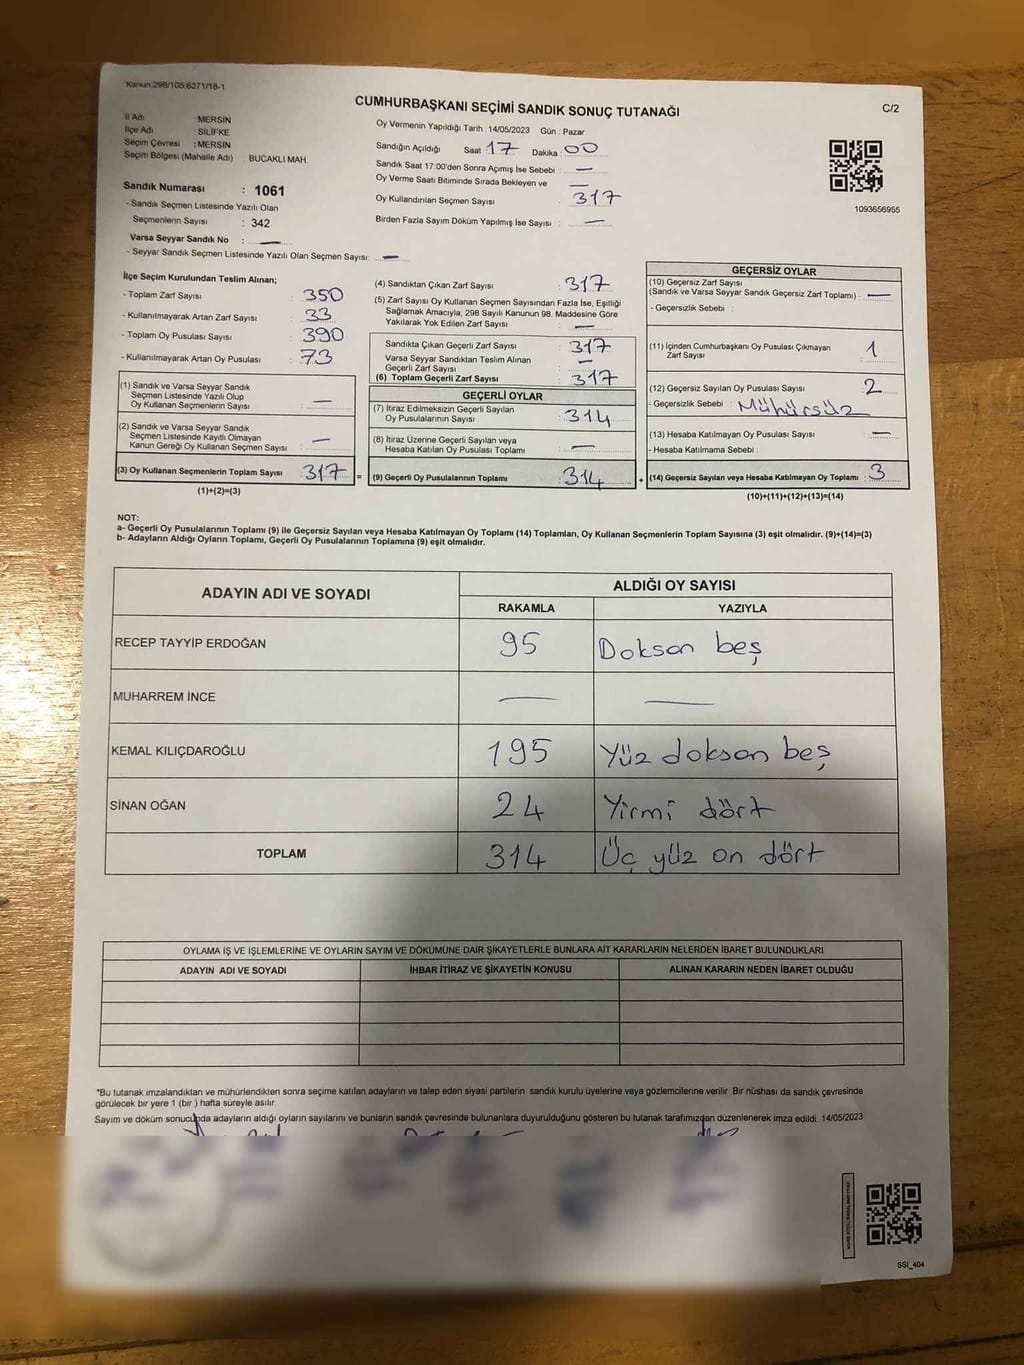 Kanun:298/105;6271/18-1
CUMHURBAŞKANI SEÇİMİ SANDIK SONUÇ TUTANAĞI
C/2
İl Adı : MERSİN
İlçe Adı : SİLİFKE
Seçim Çevresi : MERSİN
Seçim Bölgesi (Mahalle Adı) : BUCAKLI MAH.
Sandık Numarası : 1061
- Sandık Seçmen Listesinde Yazılı Olan
Seçmenlerin Sayısı : 342
Varsa Seyyar Sandık No : —
- Seyyar Sandık Seçmen Listesinde Yazılı Olan Seçmen Sayısı: —
Oy Vermenin Yapıldığı Tarih : 14/05/2023 Gün : Pazar
Sandığın Açıldığı Saat 17 Dakika 00
Sandık Saat 17:00'den Sonra Açımış İse Sebebi : —
Oy Verme Saati Bitiminde Sırada Bekleyen ve —
Oy Kullandırılan Seçmen Sayısı 317
Birden Fazla Sayım Döküm Yapılmış İse Sayısı : —
1093656955
İlçe Seçim Kurulundan Teslim Alınan;
- Toplam Zarf Sayısı : 350
- Kullanılmayarak Artan Zarf Sayısı : 33
- Toplam Oy Pusulası Sayısı : 390
- Kullanılmayarak Artan Oy Pusulası : 73
(1) Sandık ve Varsa Seyyar Sandık
Seçmen Listesinde Yazılı Olup
Oy Kullanan Seçmenlerin Sayısı : —
(2) Sandık ve Varsa Seyyar Sandık
Seçmen Listesinde Kayıtlı Olmayan
Kanun Gereği Oy Kullanan Seçmen Sayısı : —
(3) Oy Kullanan Seçmenlerin Toplam Sayısı : 317 =
(1)+(2)=(3)
(4) Sandıktan Çıkan Zarf Sayısı : 317
(5) Zarf Sayısı Oy Kullanan Seçmen Sayısından Fazla İse, Eşitliği
Sağlamak Amacıyla, 298 Sayılı Kanunun 98. Maddesine Göre
Yakılarak Yok Edilen Zarf Sayısı : —
Sandıkta Çıkan Geçerli Zarf Sayısı : 317
Varsa Seyyar Sandıktan Teslim Alınan
Geçerli Zarf Sayısı : —
(6) Toplam Geçerli Zarf Sayısı : 317
GEÇERLİ OYLAR
(7) İtiraz Edilmeksizin Geçerli Sayılan
Oy Pusulalarının Sayısı : 314
(8) İtiraz Üzerine Geçerli Sayılan veya
Hesaba Katılan Oy Pusulası Toplamı : —
(9) Geçerli Oy Pusulalarının Toplamı : 314 +
GEÇERSİZ OYLAR
(10) Geçersiz Zarf Sayısı
(Sandık ve Varsa Seyyar Sandık Geçersiz Zarf Toplamı) : —
- Geçersizlik Sebebi :
(11) İçinden Cumhurbaşkanı Oy Pusulası Çıkmayan
Zarf Sayısı : 1
(12) Geçersiz Sayılan Oy Pusulası Sayısı : 2
- Geçersizlik Sebebi : Mühürsüz
(13) Hesaba Katılmayan Oy Pusulası Sayısı : —
- Hesaba Katılmama Sebebi :
(14) Geçersiz Sayılan veya Hesaba Katılmayan Oy Toplamı : 3
(10)+(11)+(12)+(13)=(14)
NOT:
a- Geçerli Oy Pusulalarının Toplamı (9) ile Geçersiz Sayılan veya Hesaba Katılmayan Oy Toplamı (14) Toplamları, Oy Kullanan Seçmenlerin Toplam Sayısına (3) eşit olmalıdır. (9)+(14)=(3)
b- Adayların Aldığı Oyların Toplamı, Geçerli Oy Pusulalarının Toplamına (9) eşit olmalıdır.
ADAYIN ADI VE SOYADI ALDIĞI OY SAYISI
RAKAMLA YAZIYLA
RECEP TAYYİP ERDOĞAN 95 Doksan beş
MUHARREM İNCE — —
KEMAL KILIÇDAROĞLU 195 Yüz doksan beş
SİNAN OĞAN 24 Yirmi dört
TOPLAM 314 Üç yüz on dört
OYLAMA İŞ VE İŞLEMLERİNE VE OYLARIN SAYIM VE DÖKÜMÜNE DAİR ŞİKAYETLERLE BUNLARA AİT KARARLARIN NELERDEN İBARET BULUNDUKLARI
ADAYIN ADI VE SOYADI İHBAR İTİRAZ VE ŞİKAYETİN KONUSU ALINAN KARARIN NEDEN İBARET OLDUĞU
*Bu tutanak imzalandıktan ve mühürlendikten sonra seçime katılan adayların ve talep eden siyasi partilerin sandık kurulu üyelerine veya gözlemcilerine verilir. Bir nüshası da sandık çevresinde
görülecek bir yere 1 (bir ) hafta süreyle asılır.
Sayım ve döküm sonucunda adayların aldığı oyların sayılarını ve bunların sandık çevresinde bulunanlara duyurulduğunu gösteren bu tutanak tarafımızdan düzenlenerek imza edildi. 14/05/2023
SSI_404